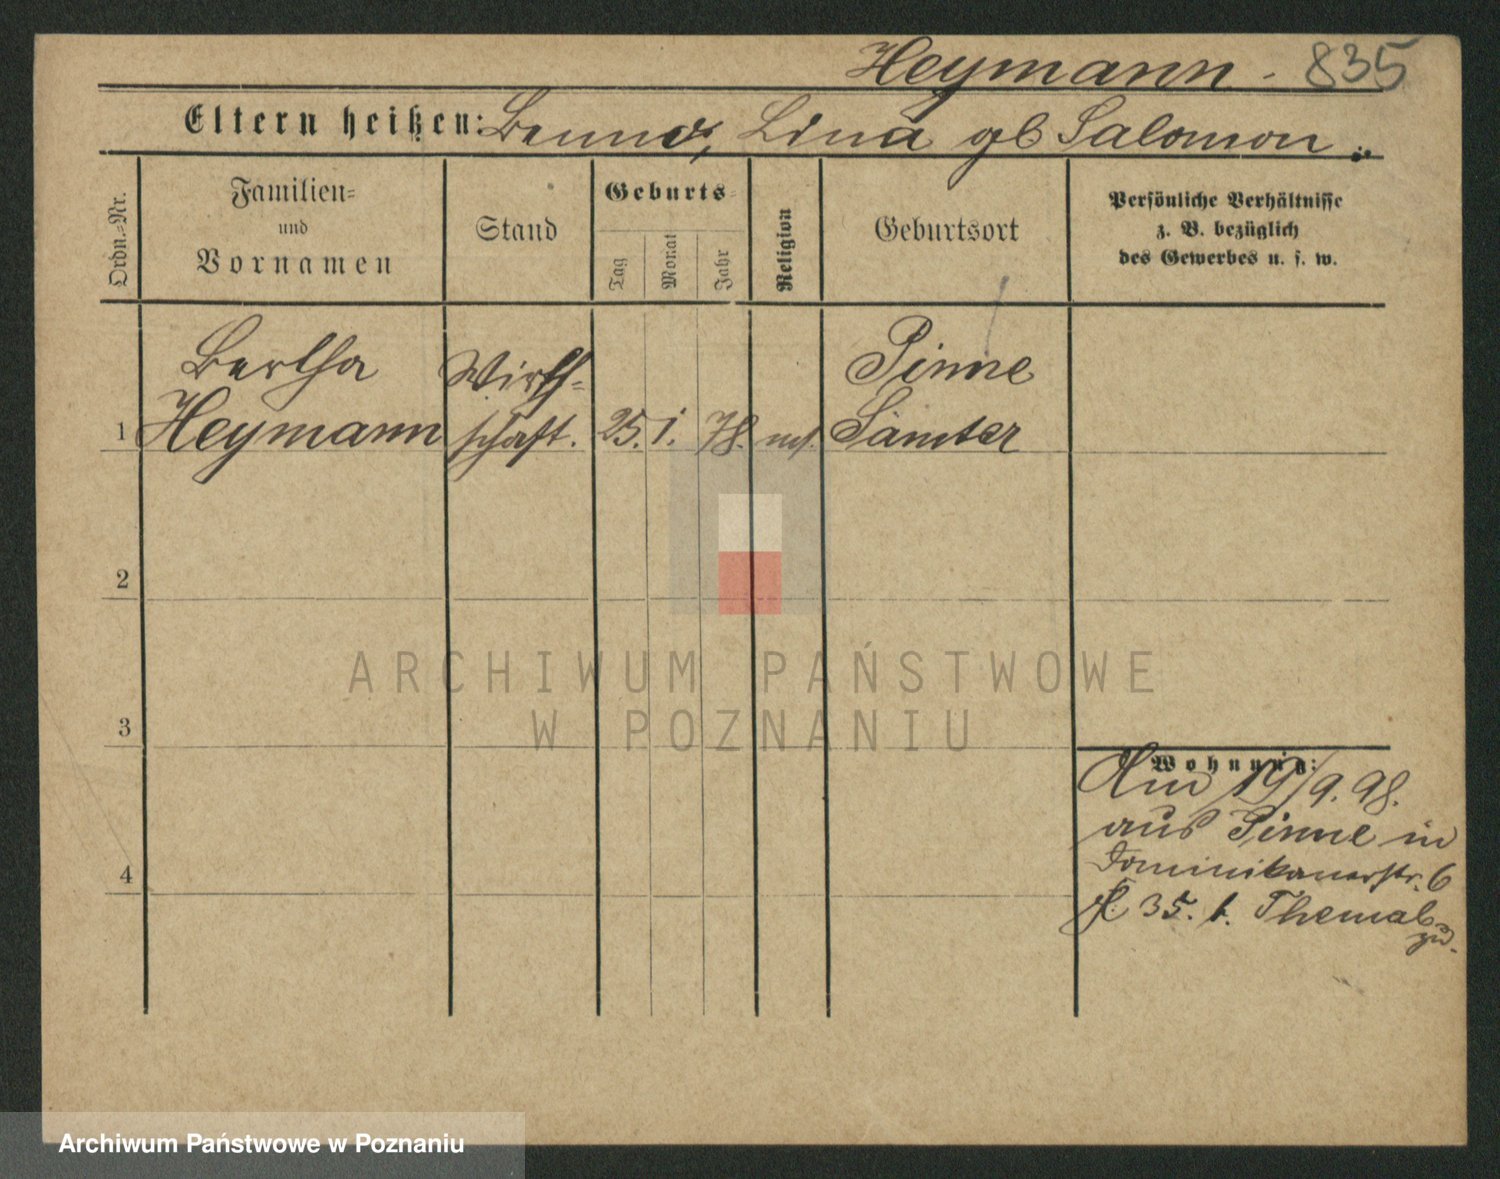 Heymann. 835
Eltern heißen: Benno, Lina gb Salomon.
Ordn.-Nr.
Familien-
und
Vornamen
Stand
Geburts-
Tag
Monat
Jahr
Religion
Geburtsort
Persönliche Verhältnisse
z. B. bezüglich
des Gewerbes u. s. w.
Bertha
Heymann
Wirth-
schaft.
1
25. 1. 78. mos.
Pinne
Samter
2
3
4
Wohnung:
19/9. 98.
aus Pinne in
Dominikanerstr. 6
35. b. Themal
ARCHIWUM PAŃSTWOWE
W POZNANIU
Archiwum Państwowe w Poznaniu